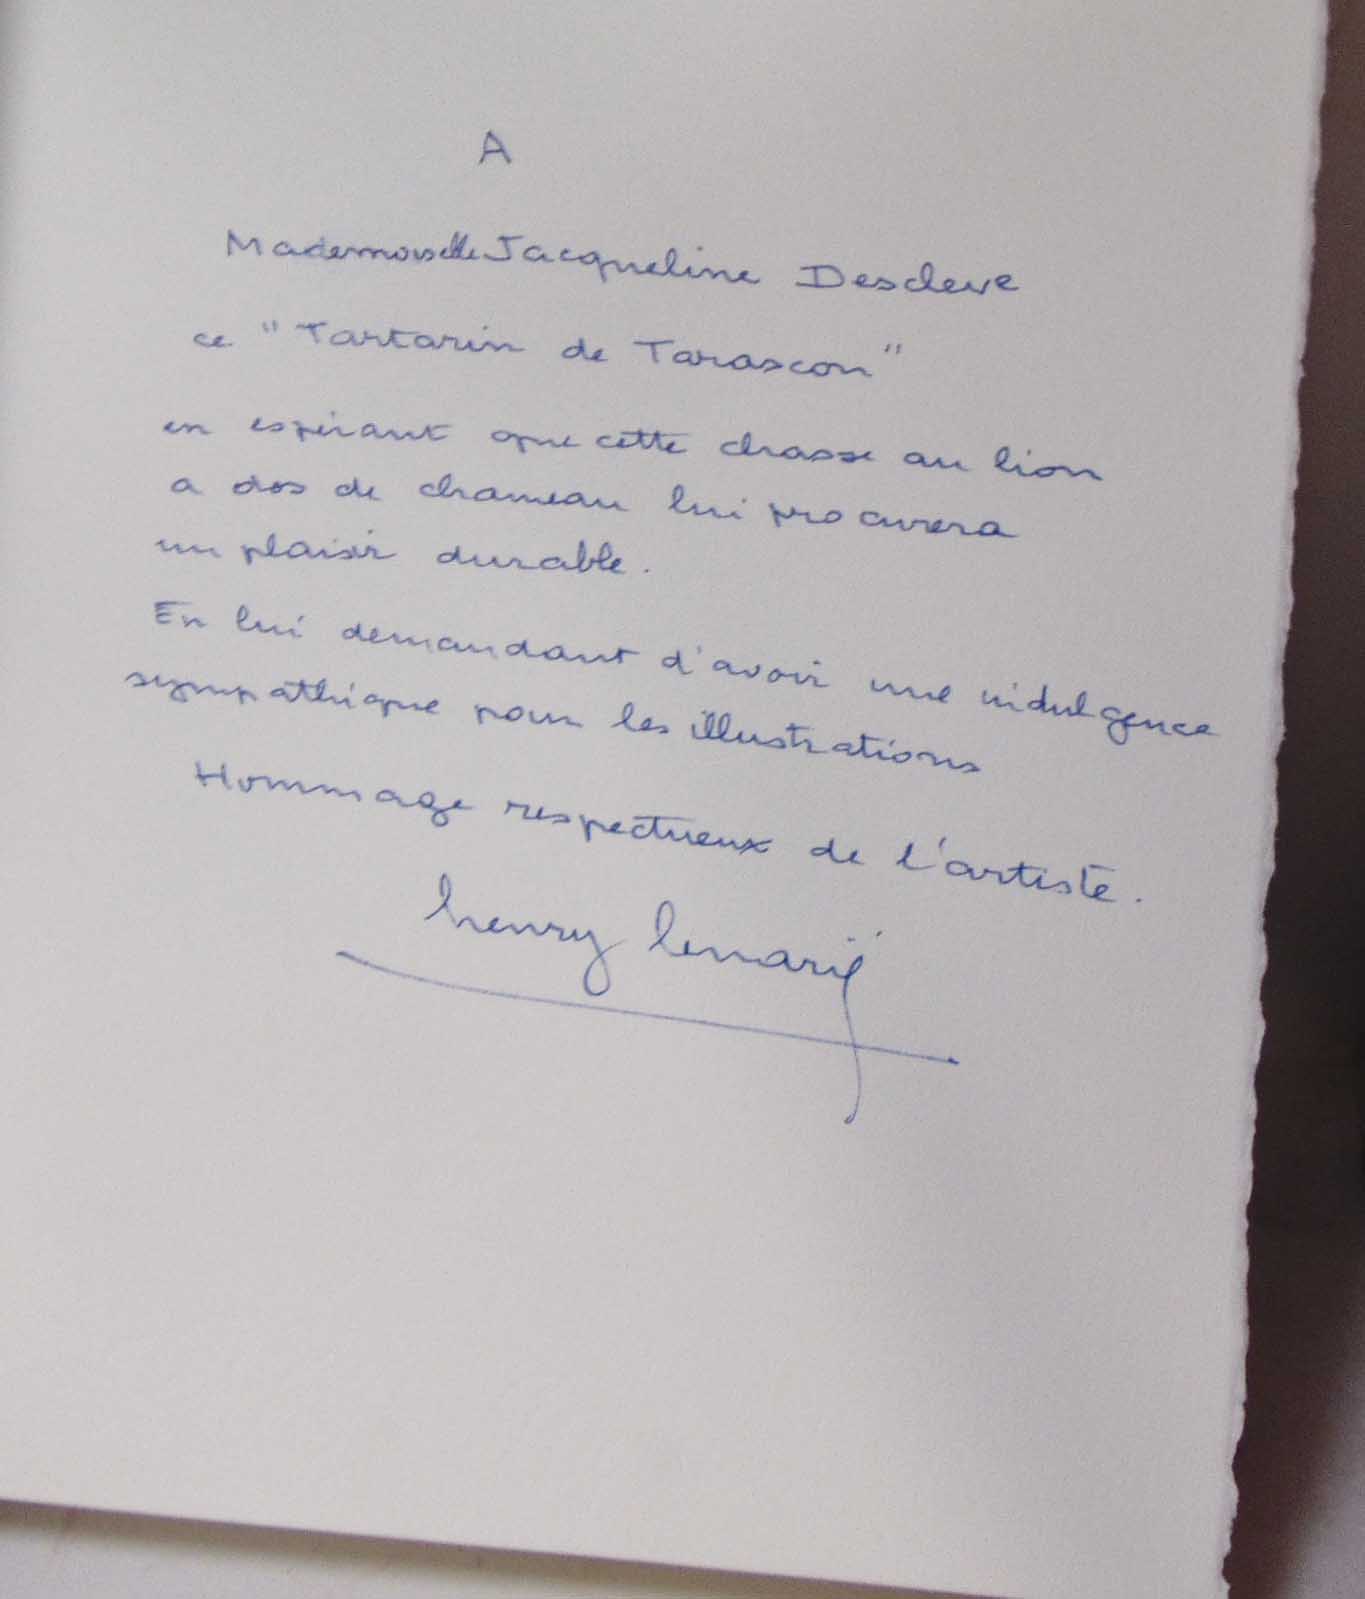 A
Mademoiselle Jacqueline Descleve
ce "Tartarin de Tarascon"
en espérant que cette chasse au lion
a dos de chameau lui procurera
un plaisir durable.
En lui demandant d'avoir une indulgence
sympathique pour les illustrations
Hommage respectueux de l'artiste.
henry lemarié